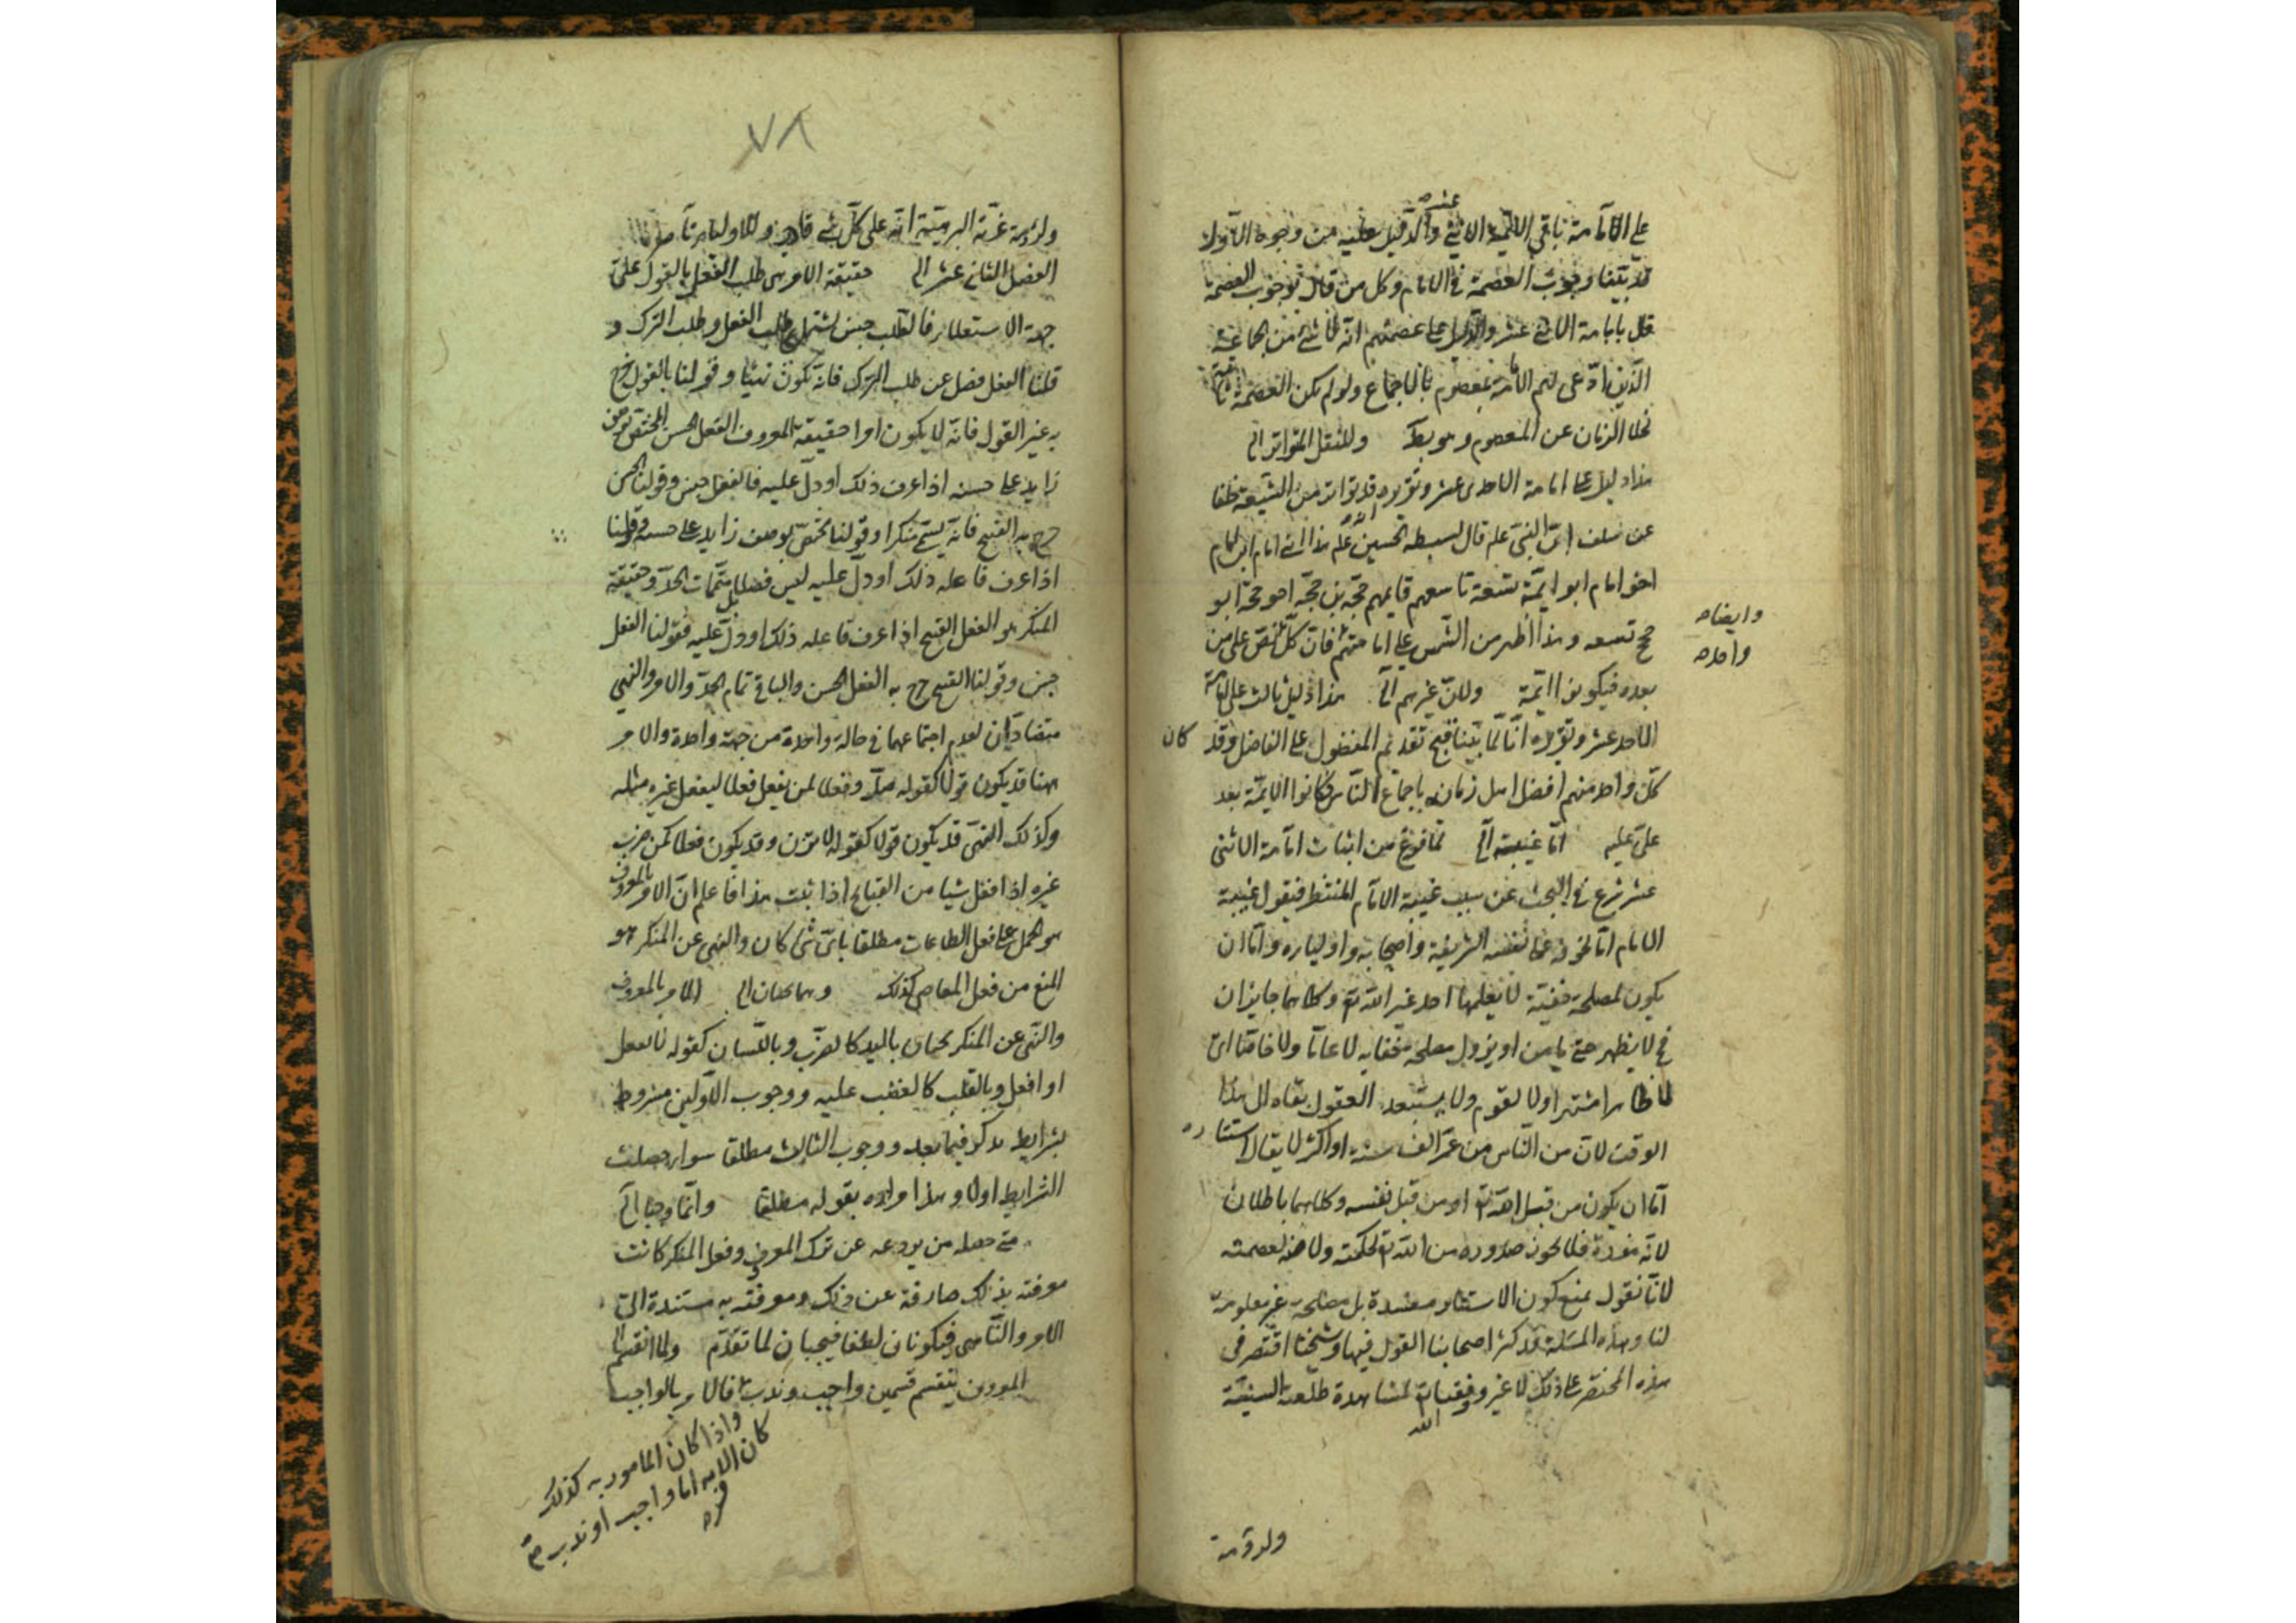 على الامامة باقي الائمة الاثنى عشر والدليل عليه من وجوه الاول
قد بينا وجوب العصمة في الامام وكل من قال بوجوب العصمة
قال بامامة الاثنى عشر والدليل على عصمتهم انه لا شئ من الجماعة
الذين ادعى لهم الامامة بمعصوم بالاجماع ولو لم يكن العصمة
لخلا الزمان عن المعصوم وهو بط وللنقل المتواتر الى
هذا دليل على امامة الاحدى عشر وتقريره قد تواتر من الشيعة خلفا
عن سلف ان النبى علم قال لسبطه الحسين علم هذا ابنى امام ابن امام
اخو امام ابو ايمة تسعة تاسعهم قايمهم حجة بن حجة اخو حجة ابو
وايضا
حجج تسعه وهذا اظهر من الشمس على امامتهم فان كل نص على من
واحد
بعده فيكونوا ائمة ولان غيرهم الى هذا دليل ثالث على امامة
الاحد عشر وتقريره انا لما بينا قبح تقديم المفضول على الفاضل وقد كان
كل واحد منهم افضل اهل زمانه باجماع الناس وكانوا الايمة بعد
على عليه اما غيبته الى لما فرغ من اثبات امامة الاثنى
عشر شرع في البحث عن سبب غيبة الامام المنتظر فيقول غيبة
الامام اما لخوفه على نفسه الشريفة واصحابه واوليايه واما ان
يكون لمصلحة خفية لا يعلمها احد غير الله تع وكلاهما جايزان
فح لا يظهر حتى يامن او يزول مصلحة
لا ظاهرا مشتهرا ولا يستبعد العقول بقاه الى هذا
الوقت لان من الناس من عمر الف سنة او اكثر لا يقال استتاره
اما ان يكون من قبل الله تع او من قبل نفسه وكلاهما باطلان
لانه مفسدة فلا يجوز صدوره من الله تع لحكمته ولا منه لعصمته
لانا نقول نمنع كون الاستتار مفسدة بل مصلحة غير معلومة
لنا وهذه المسئلة قد كثر اصحابنا القول فيها وشيخنا اقتصر في
هذه المختصر على ذلك لا غير وفقنا الله لمشاهدة طلعته السنية
ولرؤية
٧٨
ولرؤية غرته البهية انه على كل شئ قادر
الفصل الثانى عشر الى حقيقة الامر هى طلب الفعل بالقول على
جهة الاستعلاء فالطلب جنس يشتمل على طلب الفعل وطلب الترك و
قلنا الفعل فصل عن طلب الترك فانه يكون نهيا وقولنا بالقول خرج
به غير القول فانه لا يكون امرا حقيقة المعروف الفعل الحسن المختص بوصف
زايد على حسنه اذا عرف ذلك او دل عليه فالفعل جنس وقولنا الحسن
خرج به القبيح فانه يسمى منكرا وقولنا مختص بوصف زايد على حسنه وقولنا
اذا عرف فاعله ذلك او دل عليه ليس فصلا بل متممات الحد وحقيقة
المنكر هو الفعل القبيح اذا عرف فاعله ذلك او دل عليه فقولنا الفعل
جنس وقولنا القبيح خرج به الفعل الحسن والباقى تمام الحد والامر والنهى
متضادان لعدم اجتماعهما في حالة واحدة من جهة واحدة والامر
ههنا قد يكون قولا كقوله صل وفعلا لمن يفعل فعلا ليفعل غيره مثله
وكذلك النهى قد يكون قولا كقوله لا تزن وقد يكون فعلا كمن ضرب
غيره اذا فعل شيا من القبائح اذا ثبت هذا فاعلم ان الامر بالمعروف
هو الحمل على فعل الطاعات مطلقا باى شئ كان والنهى عن المنكر هو
المنع من فعل المعاصى كذلك وهما يجبان الى الامر بالمعروف
والنهى عن المنكر يجبان باليد كالضرب وباللسان كقوله لا تفعل
او افعل وبالقلب كالغضب عليه ووجوب الاولين مشروط
بشرايط يذكر فيما بعد ووجوب الثالث مطلقا سواء حصلت
الشرايط اولا وهذا مراده بقوله مطلقا وانما وجبا الى
متى حصل من يردعه عن ترك المعروف وفعل المنكر كانت
معرفته بذلك صارفة عن ذلك ومعرفته به مستندة الى
الامر والناهى فيكونان لطفا فيجبان لما تقدم ولما انقسم الى
المعروف ينقسم قسمين واجب وندب فالامر بالواجب
واذا كان المامور به كذلك
كان الامر اما واجب او ندب صح